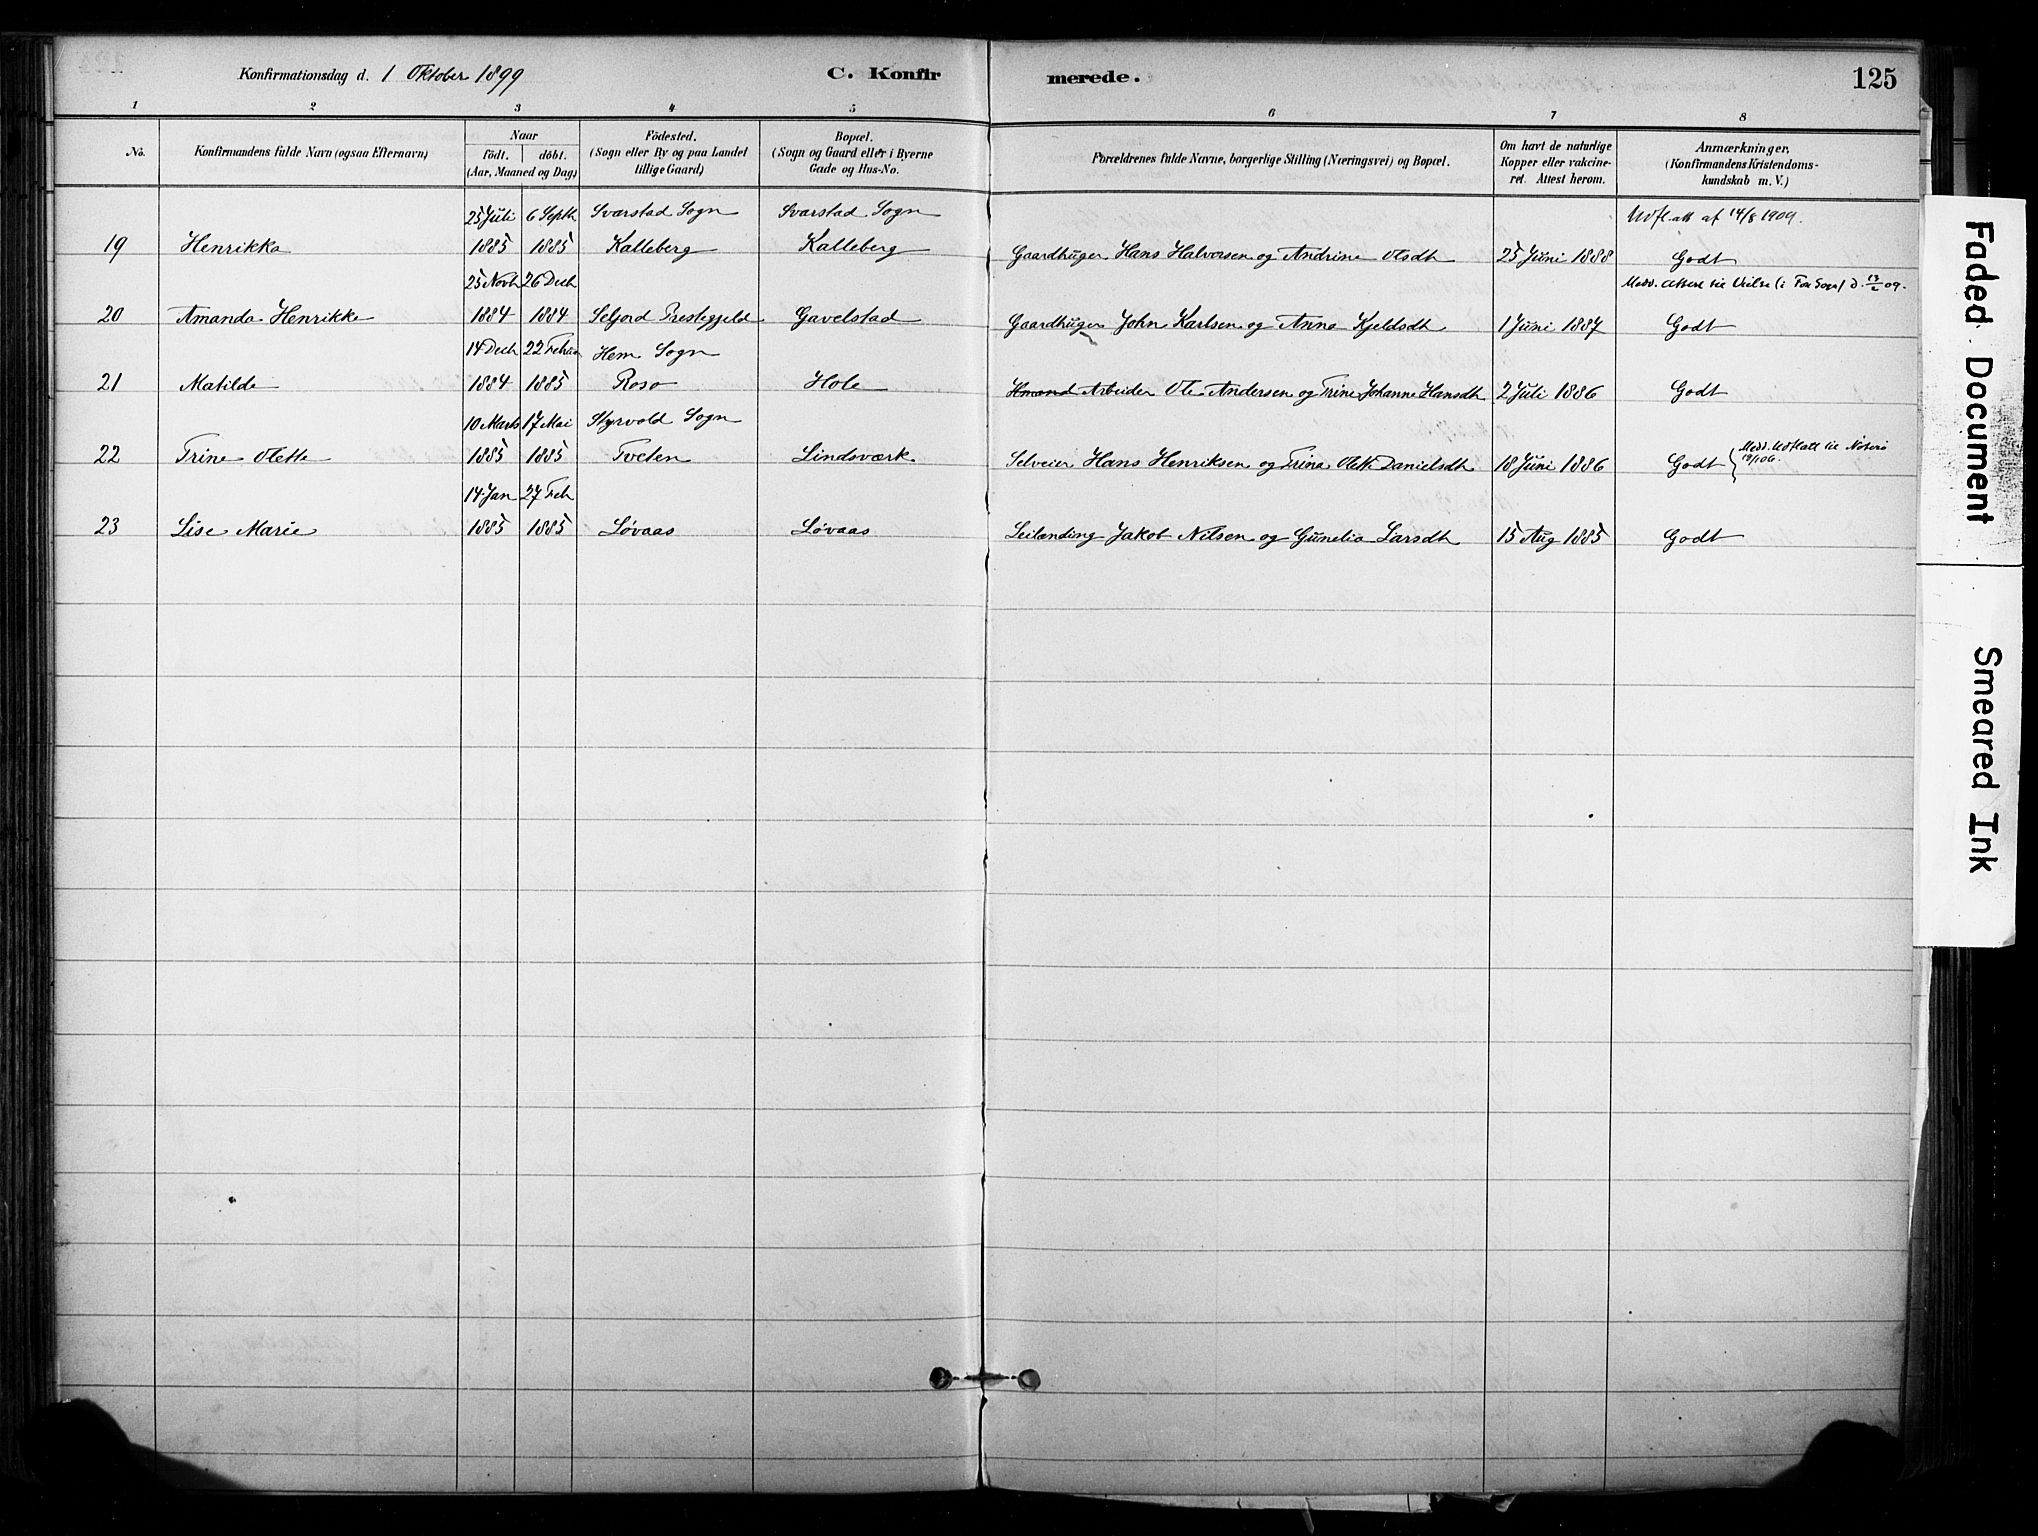 Konfirmationsdag d. 1 Oktober 1899 C. Konfir merede. 125
1 2 3 4 5 6 7 8
No. Konfirmandens fulde Navn (ogsaa Efternavn) Naar födt. döbt. (Aar, Maaned og Dag) Födested. (Sogn eller By og paa Landet tillige Gaard) Bopæl. (Sogn og Gaard eller i Byerne Gade og Hus-No. Forældrenes fulde Navne, borgerlige Stilling (Næringsvei) og Bopæl. Om havt de naturlige Kopper eller vakcineret. Attest herom. Anmærkninger, (Konfirmandens Kristendomskundskab m. V.)
25 Juli 6 Septb Svarstad Sogn Svarstad Sogn Udfl. att af 14/8 1909.
19 Henrikka 1885 1885 Kalleberg Kalleberg Gaardbruger Hans Halvorsen og Andrine Olsdt 25 Juni 1888 Godt
25 Novb 26 Decb Medd. Attest til Vielse
20 Amanda Henrikke 1884 1884 Seljord Prestegjeld Gavelstad Gaardbruger John Karlsen og Anna Kjeldsdt 1 Juni 1887 Godt
14 Decb 22 Februar Hem Sogn
21 Matilde 1884 1885 Roso Hole Hmand Arbeider Ole Andersen og Trine Johanne Hansdt 2 Juli 1886 Godt
10 Marts 17 Mai Styrvold Sogn
22 Trine Olette 1885 1885 Tveten Lindsværk Selveier Hans Henriksen og Trina Olette Danielsdt 18 Juni 1886 Godt Medd. Udfl att til Nøterø
14 Jan 27 Feb
23 Lise Marie 1885 1885 Løvaas Løvaas Leilænding Jakob Nilsen og Gunelia Larsdt 15 Aug 1885 Godt
Faded Document
Smeared Ink